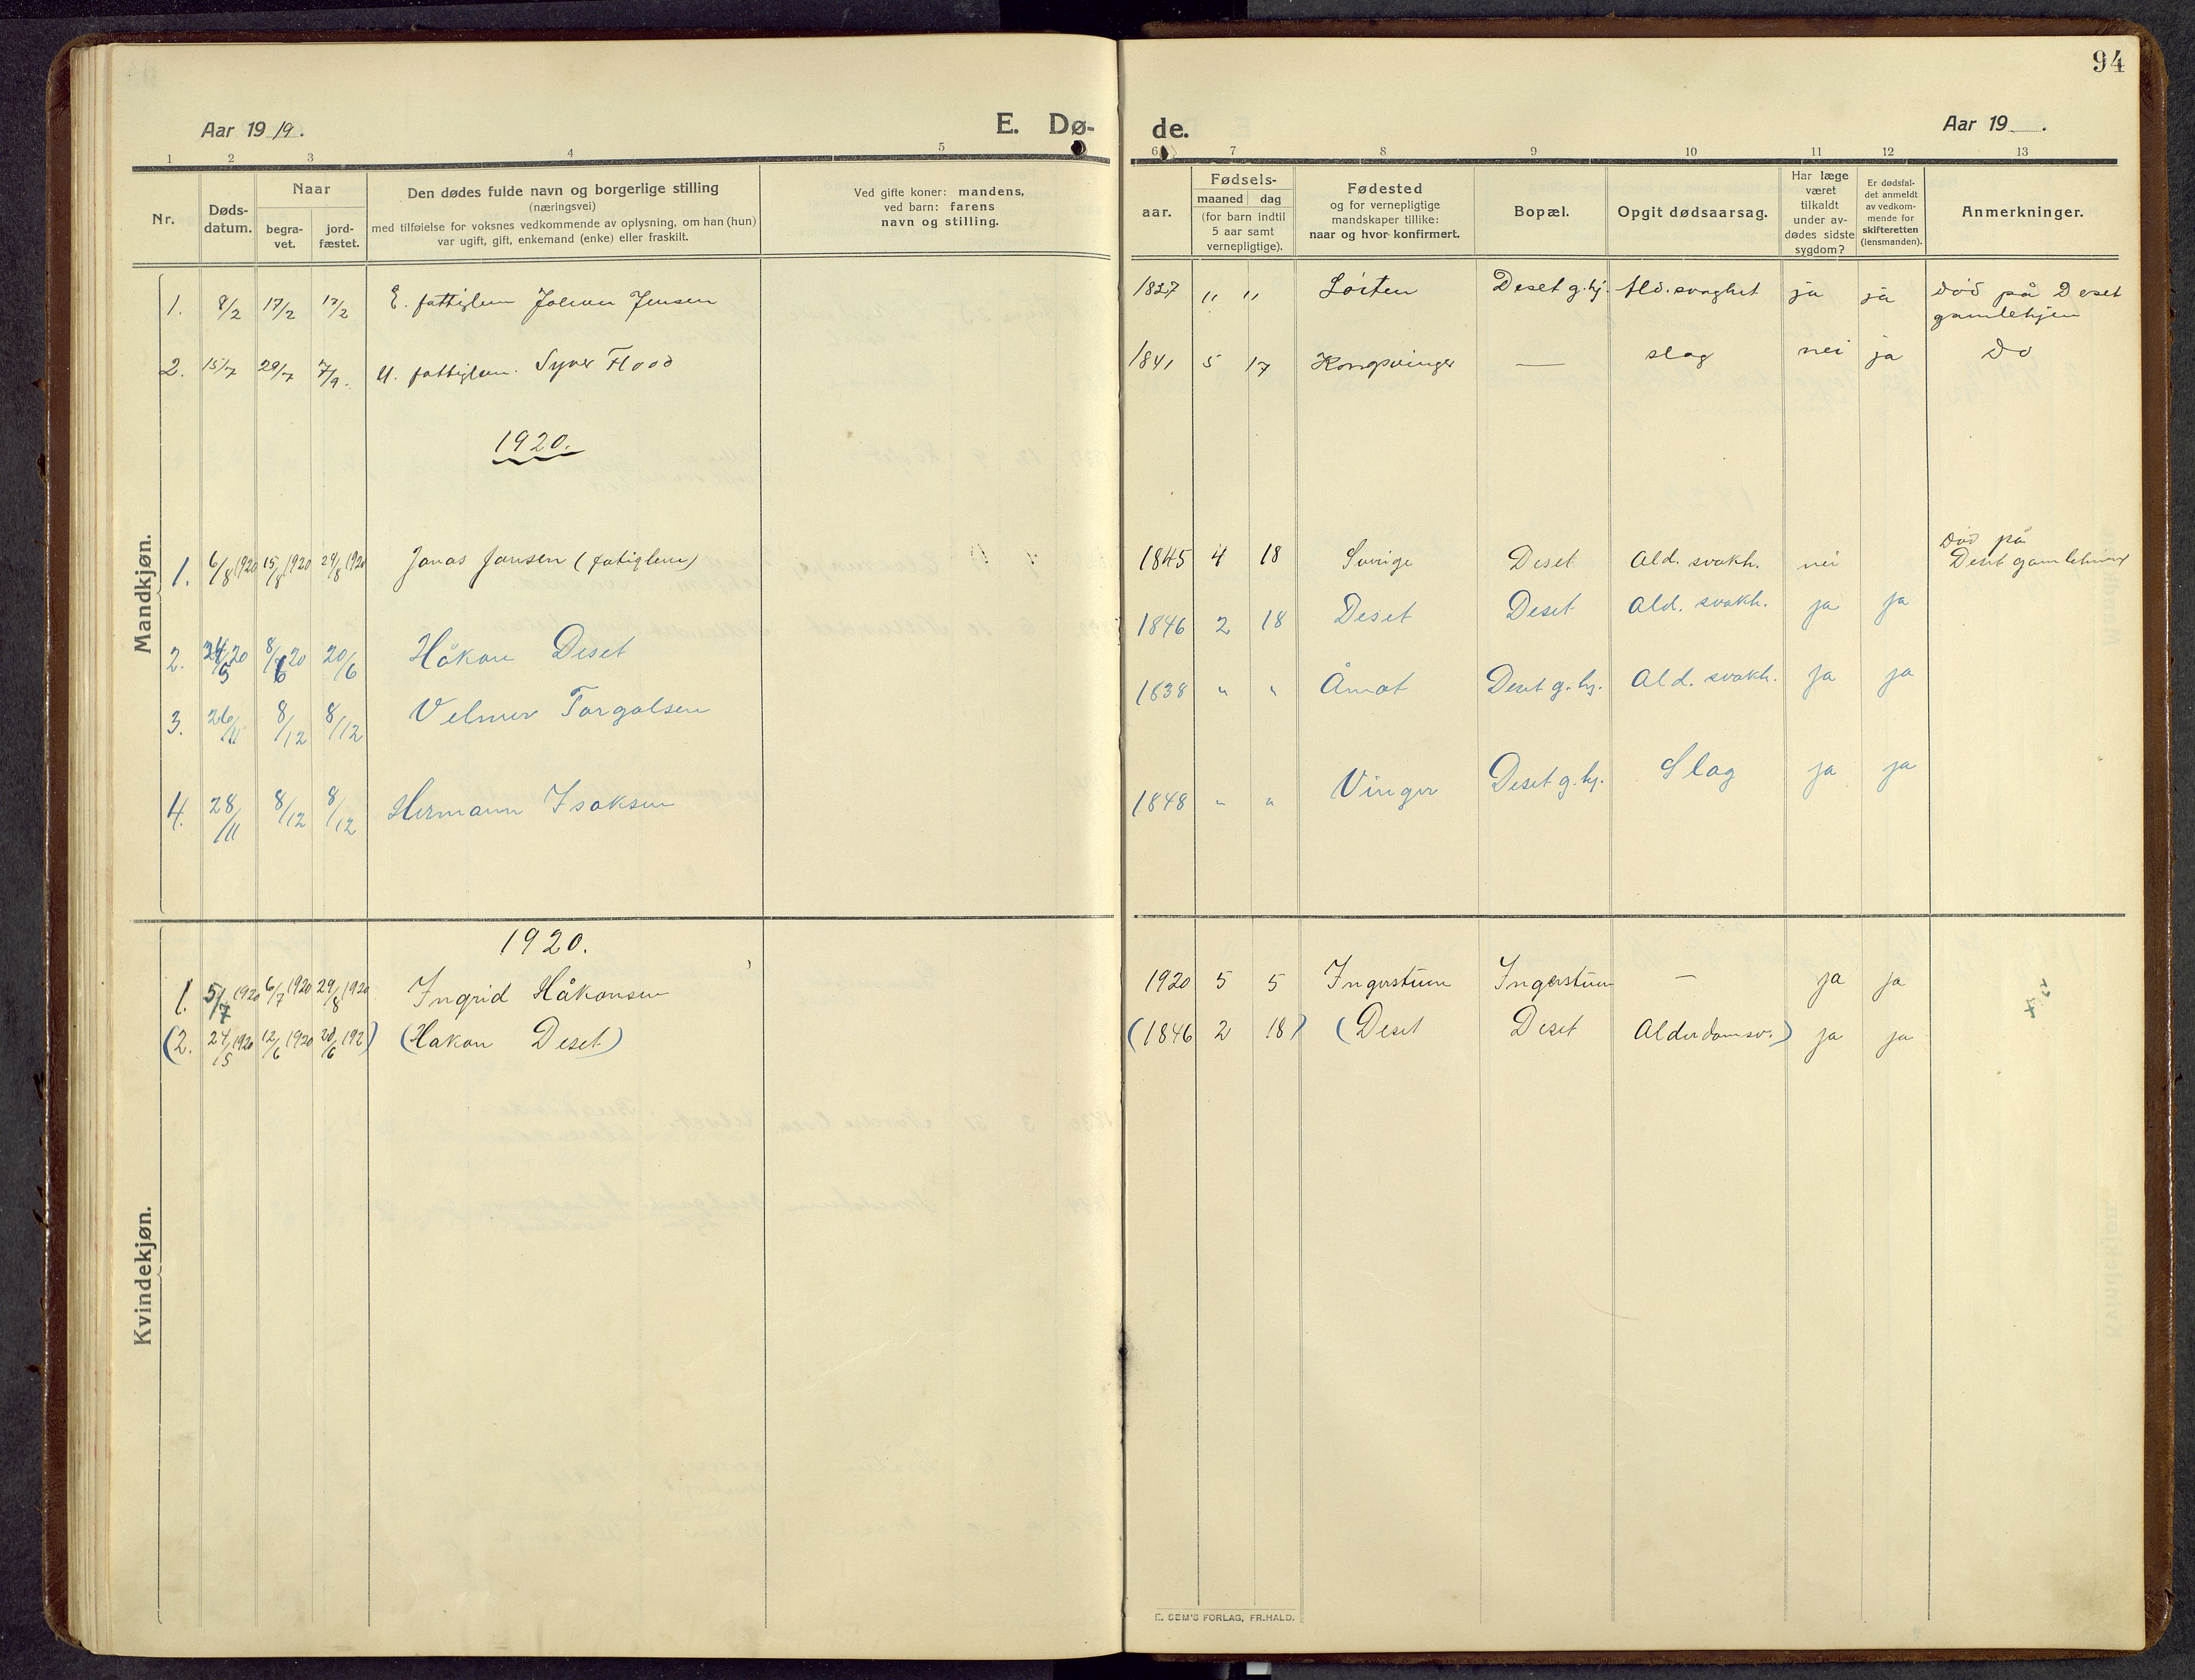 94
Aar 1919.
E. Dø-
de.
Aar 19 .
1 2 3 4 5 6 7 8 9 10 11 12 13
Nr.
Døds-
datum.
Naar
begra-
vet.
jord-
fæstet.
Den dødes fulde navn og borgerlige stilling
(næringsvei)
med tilføielse for voksnes vedkommende av oplysning, om han (hun)
var ugift, gift, enkemand (enke) eller fraskilt.
Ved gifte koner: mandens,
ved barn: farens
navn og stilling.
Fødsels-
aar.
maaned dag
(for barn indtil
5 aar samt
vernepligtige).
Fødested
og for vernepligtige
mandskaper tillike:
naar og hvor konfirmert.
Bopæl.
Opgit dødsaarsag.
Har læge
været
tilkaldt
under av-
dødes sidste
sygdom?
Er dødsfal-
det anmeldt
av vedkom-
mende for
skifteretten
(lensmanden).
Anmerkninger.
Mandkjøn.
1. 8/2 17/2 17/2 E. fattiglem Johan Jensen 1827 " " Løiten Deset g.hj. Ald.svaghet ja ja død på Deset
gamlehjem
2. 15/7 29/7 7/9. U. fattiglem. Syver Flood 1841 5 17 Kongsvinger — slag nei ja Do
1920.
1. 6/8 1920 15/8 1920 29/8 1920 Jonas Jansen (fatiglem) 1845 4 18 Sverige Deset Ald. svakh. nei Død på
Deset gamlehjem
2. 24/5 20 8/6 20 20/6 Håkon Deset 1846 2 18 Deset Deset Ald. svakh. ja ja
3. 26/11 8/12 8/12 Velmer Torgalsen 1838 " " Åmot Deset g. hj. Ald. svakh. ja ja
4. 28/11 8/12 8/12 Hermann Isaksen 1848 " " Vinger Deset g. hj. Slag ja ja
Kvindekjøn.
1920.
1. 5/7 1920 6/7 1920 29/8 1920 Ingrid Håkonsen 1920 5 5 Ingerstuen Ingerstuen — ja ja
(2. 24/5 1920 12/6 1920 20/6 192) (Hakon Deset) (1846 2 18) (Deset Deset Alderdomsv.) ja ja
E. SEM'S FORLAG, FR.HALD.